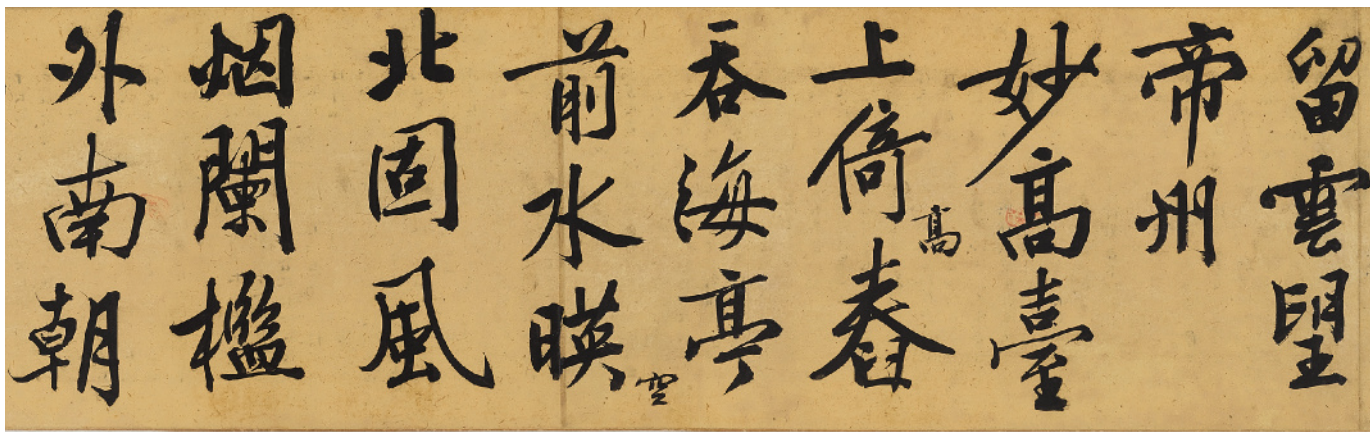 留雲望
帝州
妙髙臺
上倚髙舂
吞海亭
前水映空
北固風
烟闌檻
外南朝